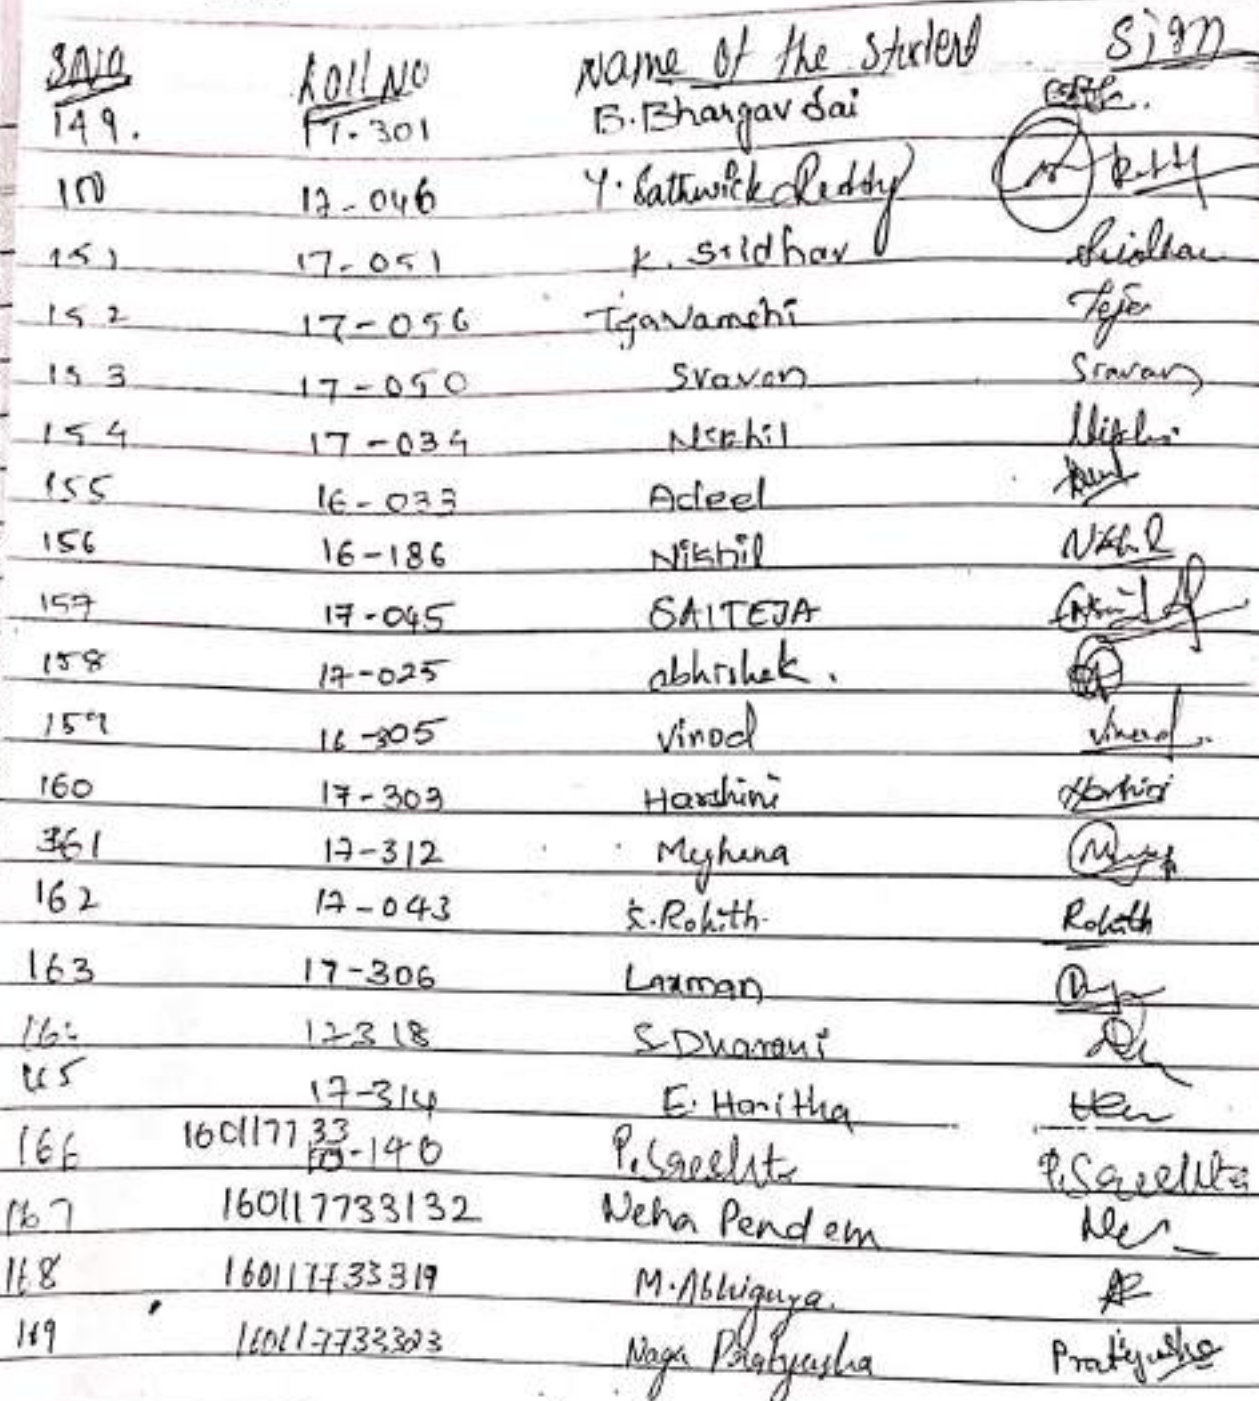 S.NO Roll NO Name of the Student Sign
149. 17-301 B.Bhargav Sai
150 17-046 Y. Sathwick Reddy Reddy
151 17-051 K. Sridhar Sridhar
152 17-056 Teja Vamshi Teja
153 17-050 Sravan Sravan
154 17-034 Nikhil Nikhil
155 16-033 Adeel
156 16-186 Nikhil Nikhil
157 17-045 SAITEJA
158 17-025 abhishek.
159 16-305 Vinod Vinod
160 17-303 Harshini Harshini
361 17-312 Meghana
162 17-043 K.Rohith Rohith
163 17-306 Laxman
164 17-318 S.Dharani
165 17-314 E. Haritha
166 160117733-140 P.Sreeshta P.Sreeshta
167 160117733132 Neha Pendem
168 160117733319 M.Abhignya.
169 160117733323 Naga Pratyusha Pratyusha